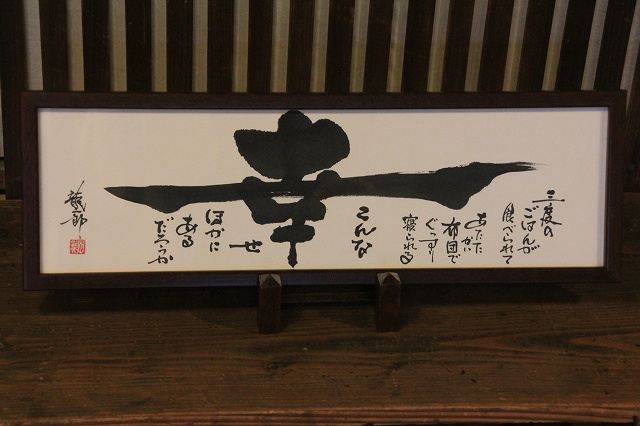 三度の
ごはんが
食べられて
あたたかい
布団で
ぐっすり
寝られる
こんな
幸
せ
ほかに
ある
だろうか
龍郎